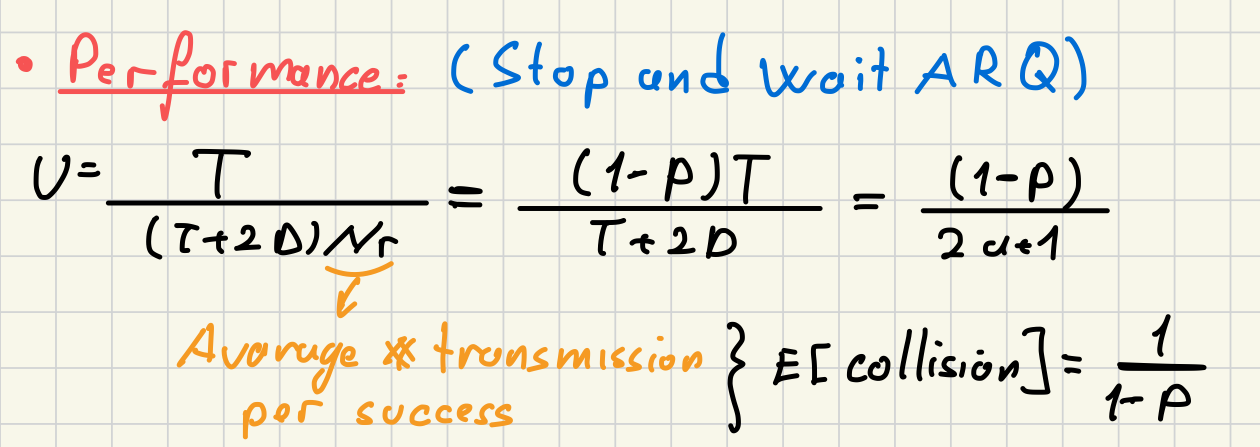 • Performance: (Stop and wait ARQ)
U = T / (T+2D)Nr = (1-P)T / T+2D = (1-P) / 2a+1
Avarage # transmission per success } E[collision] = 1 / 1-P